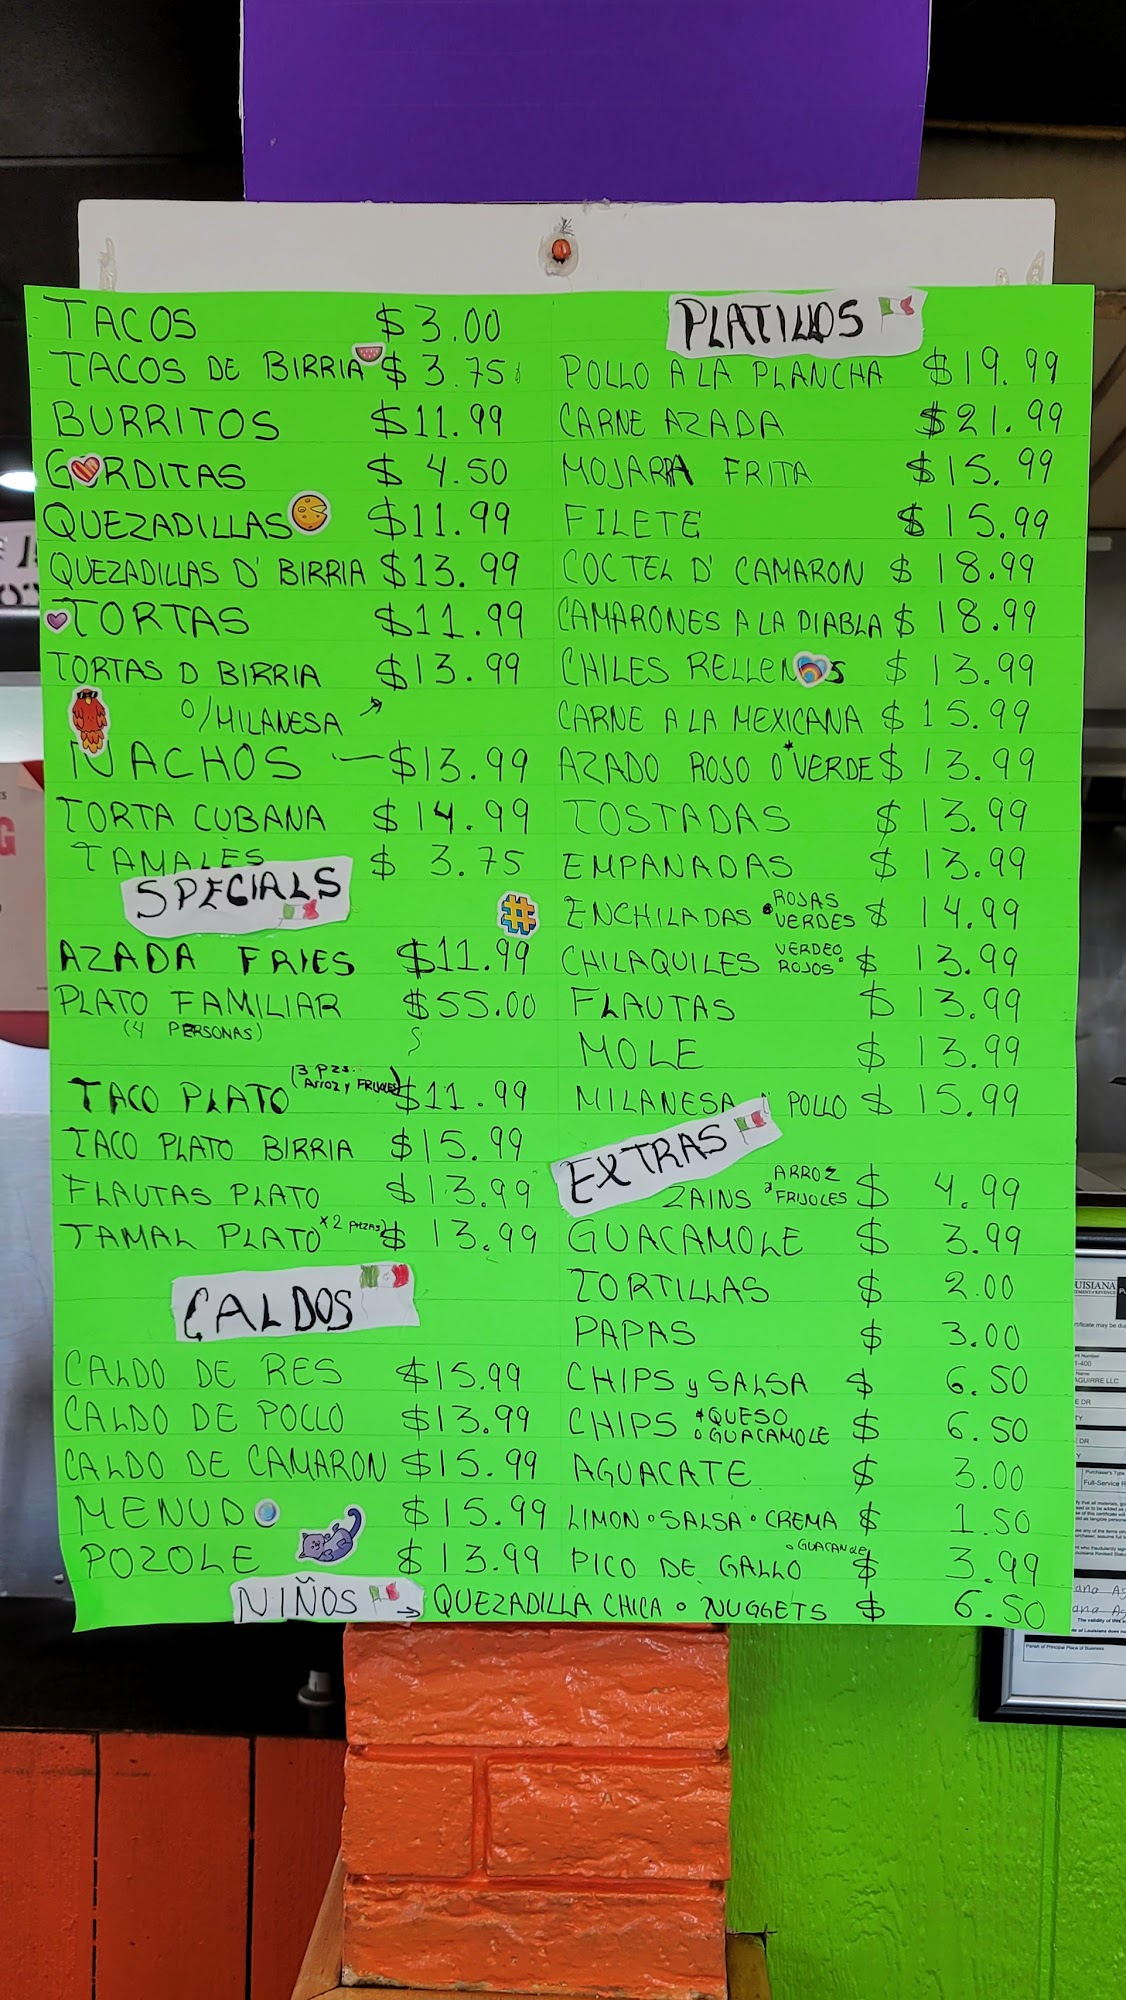 TACOS $3.00
TACOS DE BIRRIA $3.75
BURRITOS $11.99
GORDITAS $4.50
QUEZADILLAS $11.99
QUEZADILLAS D' BIRRIA $13.99
TORTAS $11.99
TORTAS D BIRRIA $13.99
O/MILANESA
NACHOS — $13.99
TORTA CUBANA $14.99
TAMALES $3.75
SPECIALS
AZADA FRIES $11.99
PLATO FAMILIAR $55.00
(4 PERSONAS)
TACO PLATO (3 PZS. Arroz y FRIJOLES) $11.99
TACO PLATO BIRRIA $15.99
FLAUTAS PLATO $13.99
TAMAL PLATO x2 PIEZAS $13.99
CALDOS
CALDO DE RES $15.99
CALDO DE POLLO $13.99
CALDO DE CAMARON $15.99
MENUDO $15.99
POZOLE $13.99
PLATILLOS
POLLO A LA PLANCHA $19.99
CARNE AZADA $21.99
MOJARRA FRITA $15.99
FILETE $15.99
COCTEL D' CAMARON $18.99
CAMARONES A LA DIABLA $18.99
CHILES RELLENOS $13.99
CARNE A LA MEXICANA $15.99
AZADO ROJO O VERDE $13.99
TOSTADAS $13.99
EMPANADAS $13.99
ENCHILADAS ROJAS VERDES $14.99
CHILAQUILES VERDEO ROJOS $13.99
FLAUTAS $13.99
MOLE $13.99
MILANESA POLLO $15.99
EXTRAS
ZAINS ARROZ FRIJOLES $4.99
GUACAMOLE $3.99
TORTILLAS $2.00
PAPAS $3.00
CHIPS y SALSA $6.50
CHIPS QUESO O GUACAMOLE $6.50
AGUACATE $3.00
LIMON • SALSA • CREMA $1.50
PICO DE GALLO o GUACAMOLE $3.99
NIÑOS → QUEZADILLA CHICA o NUGGETS $6.50
UISIANA
AGUIRRE LLC